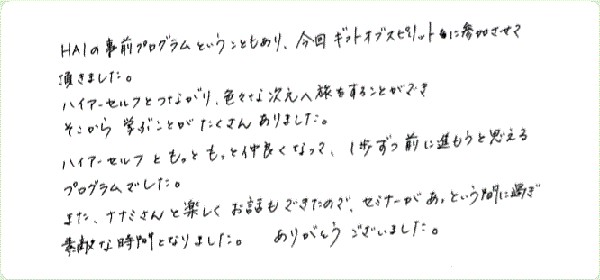 HAIの事前プログラムということもあり、今回ギフトオブスピリットに参加させて
頂きました。
ハイアーセルフとつながり、色々な次元へ旅をすることができ
そこから学ぶことがたくさんありました。
ハイアーセルフともっともっと仲良くなって、1歩ずつ前に進もうと思える
プログラムでした。
また、ナナミさんと楽しくお話もできたので、セミナーがあっという間に過ぎ
素敵な時間となりました。 ありがとうございました。